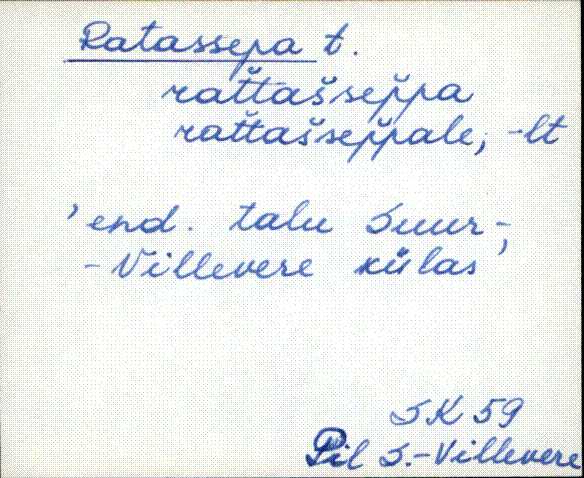 Ratassepa t.
rat̆tašsep̆pa
rat̆tašsep̆pale, -lt
'end. talu Suur-
-Villevere külas'
SK 59
Pil S.-Villevere